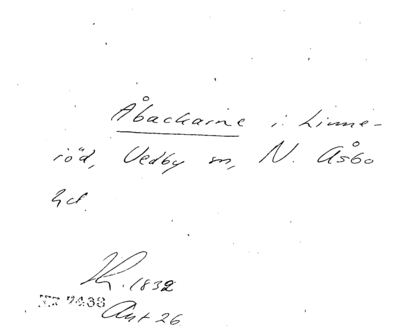 Åbackarne i Linne-
röd, Vedby sn, N. Åsbo
hd.
1832
Akt 26